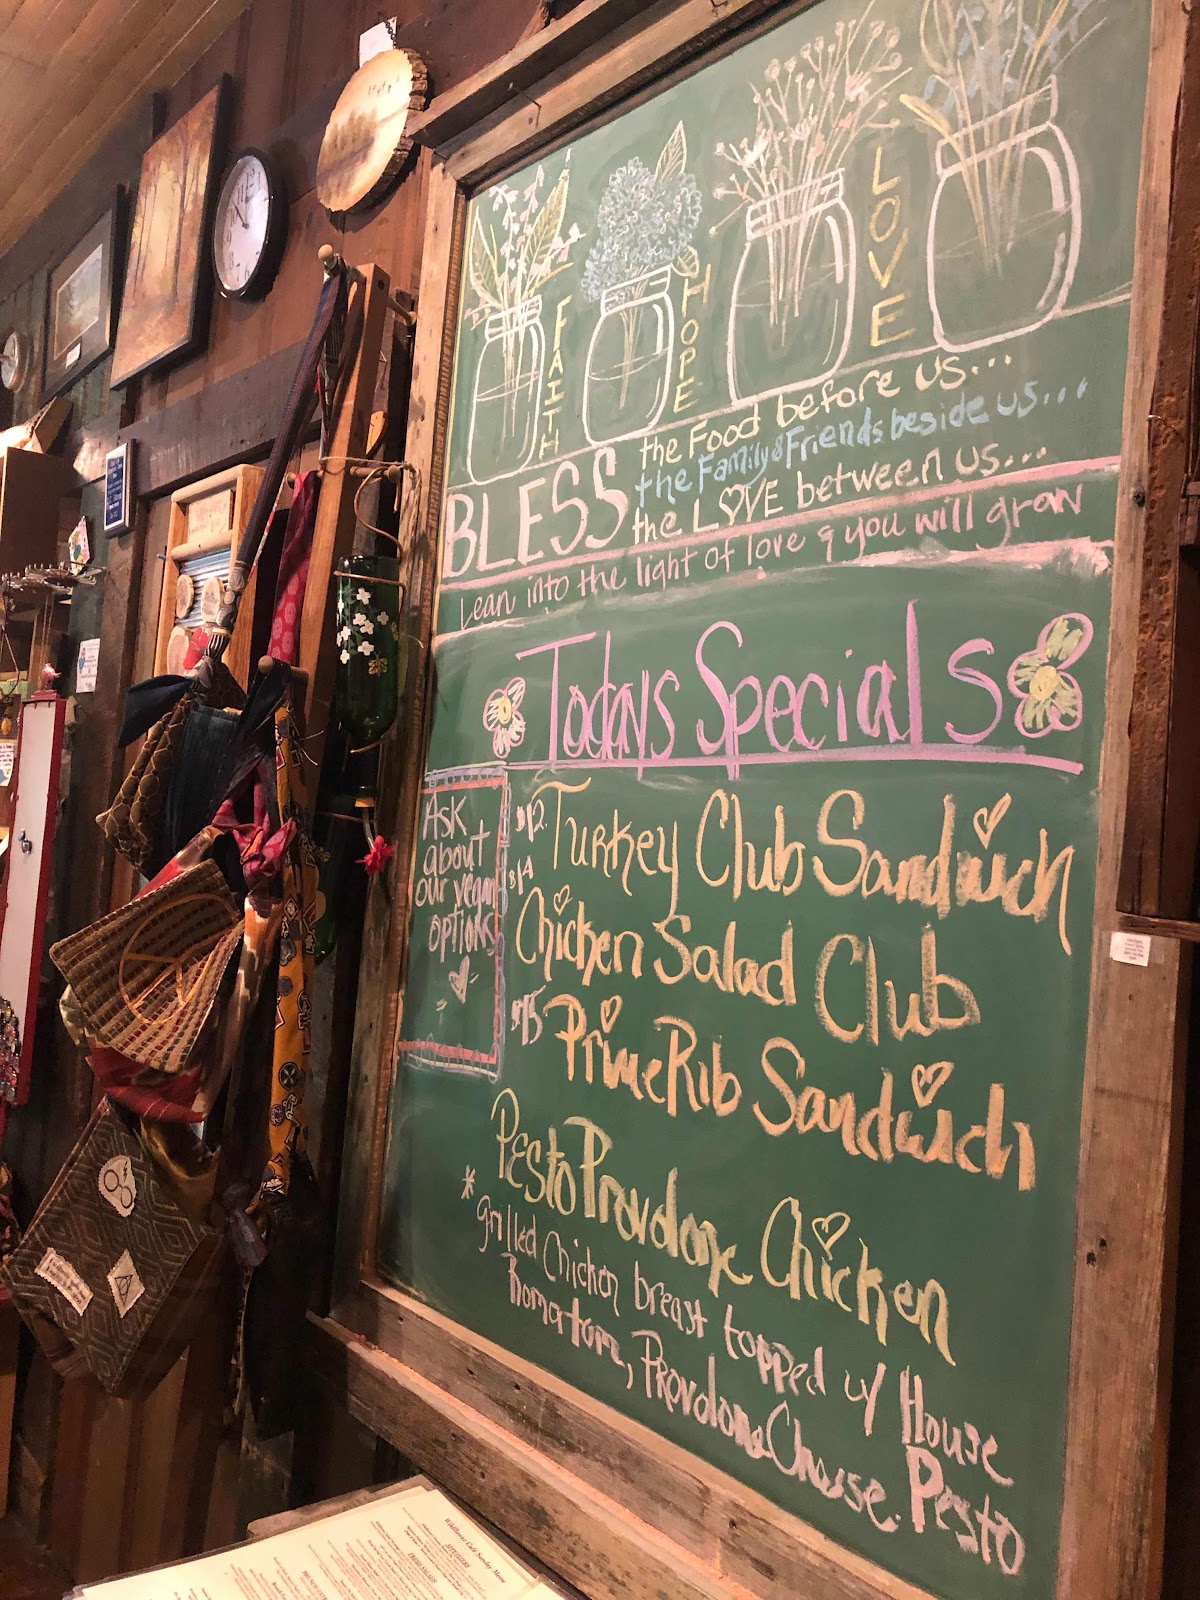 FAITH
HOPE
LOVE
BLESS
the Food before us...
the Family & Friends beside us...
the LOVE between us...
Lean into the light of love & you will grow
Todays Specials
Ask
about
our vegan
options
$12. Turkey Club Sandwich
$14 Chicken Salad Club
$15 Prime Rib Sandwich
Pesto Provolone Chicken
* Grilled Chicken breast topped w/ House Pesto
Provolone Cheese.
Wildflower Café Sunday Menu